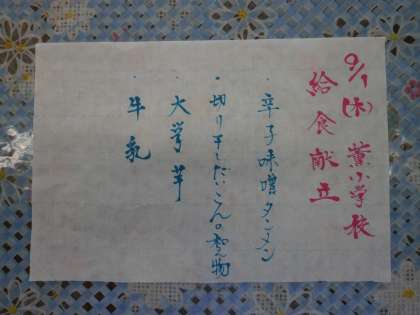 9/1(水)薫小学校
給食献立
・辛子味噌タンメン
・切り干しだいこんの煮物
・大学芋
・牛乳